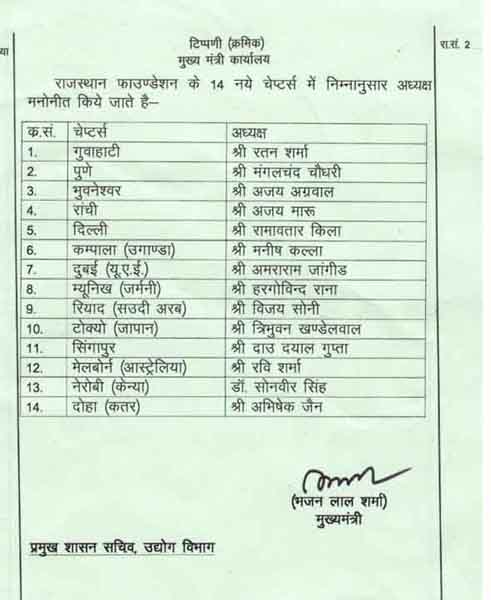 टिप्पणी (क्रमिक)
या
रा.सं. 2
मुख्य मंत्री कार्यालय
राजस्थान फाउण्डेशन के 14 नये चेप्टर्स में निम्नानुसार अध्यक्ष
मनोनीत किये जाते है–
क्र.सं. चेप्टर्स अध्यक्ष
1. गुवाहाटी श्री रतन शर्मा
2. पुणे श्री मंगलचंद चौधरी
3. भुवनेश्वर श्री अजय अग्रवाल
4. रांची श्री अजय मारू
5. दिल्ली श्री रामावतार किला
6. कम्पाला (उगाण्डा) श्री मनीष कल्ला
7. दुबई (यू.ए.ई.) श्री अमराराम जांगीड
8. म्यूनिख (जर्मनी) श्री हरगोविन्द राना
9. रियाद (सउदी अरब) श्री विजय सोनी
10. टोक्यो (जापान) श्री त्रिभुवन खण्डेलवाल
11. सिंगापुर श्री दाउ दयाल गुप्ता
12. मेलबोर्न (आस्ट्रेलिया) श्री रवि शर्मा
13. नेरोबी (केन्या) डॉ. सोनवीर सिंह
14. दोहा (कतर) श्री अभिषेक जैन
(भजन लाल शर्मा)
मुख्यमंत्री
प्रमुख शासन सचिव, उद्योग विभाग